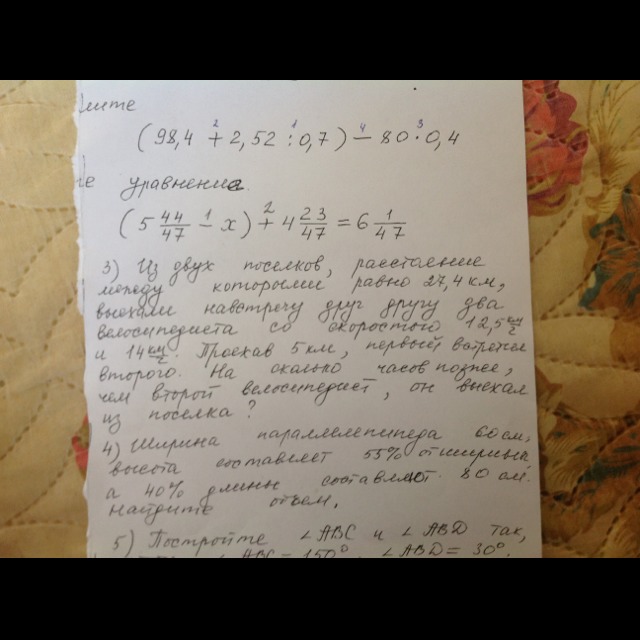 ните
(98,4 + 2,52 : 0,7) − 80 · 0,4
уравнение.
(5 44/47 − x) + 4 23/47 = 6 1/47
3) Из двух поселков, расстояние
между которыми равно 27,4 км,
выехали навстречу друг другу два
велосипедиста со скоростью 12,5 км/ч
и 14 км/ч. Проехав 5 км, первый встретил
второго. На сколько часов позднее,
чем второй велосипедист, он выехал
из поселка?
4) Ширина параллелепипеда 60 см,
высота составляет 55% от ширины
а 40% длины составляют 80 см.
найдите объем.
5) Постройте ∠ABC и ∠ABD так,
∠ABC = 150°, ∠ABD = 30°.